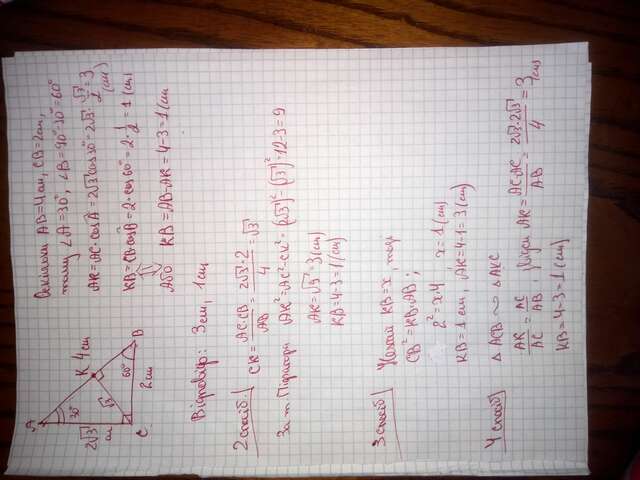 A
30°
K 4 см
2√3
см
√3
60°
C
2 см
B
Оскільки AB=4 см, CB=2 см,
тому ∠A=30°, ∠B=90°-30°=60°
AK=AC·cosA=2√3·cos30°=2√3·√3/2=3 (см)
KB=CB·cosB=2·cos60°=2·1/2=1 (см)
Або KB=AB-AK=4-3=1 (см
Відповідь: 3 см, 1 см
2 спосіб.
CK=AC·CB/AB=2√3·2/4=√3
За т. Піфагора AK²=AC²-CK²=(2√3)²-(√3)²=12-3=9
AK=√9=3 (см)
KB=4-3=1 (см)
3 спосіб
Нехай KB=x, тоді
CB²=KB·AB;
2²=x·4 ; x=1 (см)
KB=1 см, AK=4-1=3 (см)
4 спосіб
△ACB ∼ △AKC
AK/AC=AC/AB, звідси AK=AC·AC/AB=2√3·2√3/4=3 (см)
KB=4-3=1 (см)